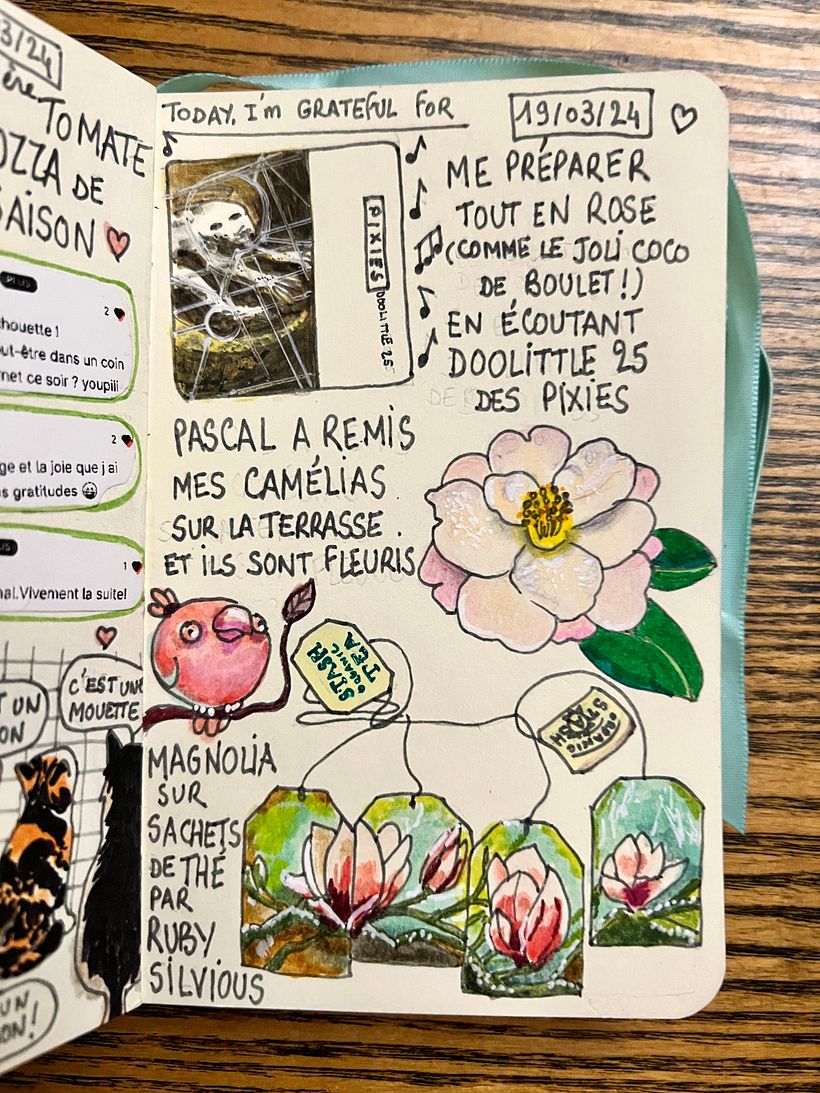 3/24
ère TOMATE
OZZA DE
SAISON
PLUS
2
houette !
ut-être dans un coin
net ce soir ? youpiii
2
ge et la joie que j ai
s gratitudes
US
1
nal. Vivement la suite!
T UN
ON
C'EST UNE
MOUETTE
UN
ON!
TODAY, I'm GRATEFUL FOR
19/03/24
PIXIES
DOOLITTLE 25
ME PRÉPARER
TOUT EN ROSE
(COMME LE JOLI COCO
DE BOULET!)
EN ÉCOUTANT
DOOLITTLE 25
DES PIXIES
PASCAL A REMIS
MES CAMÉLIAS
SUR LA TERRASSE.
ET ILS SONT FLEURIS
STASH
ORGANIC
TEA
STASH
ORGANIC
MAGNOLIA
SUR
SACHETS
DE THÉ
PAR
RUBY
SILVIOUS